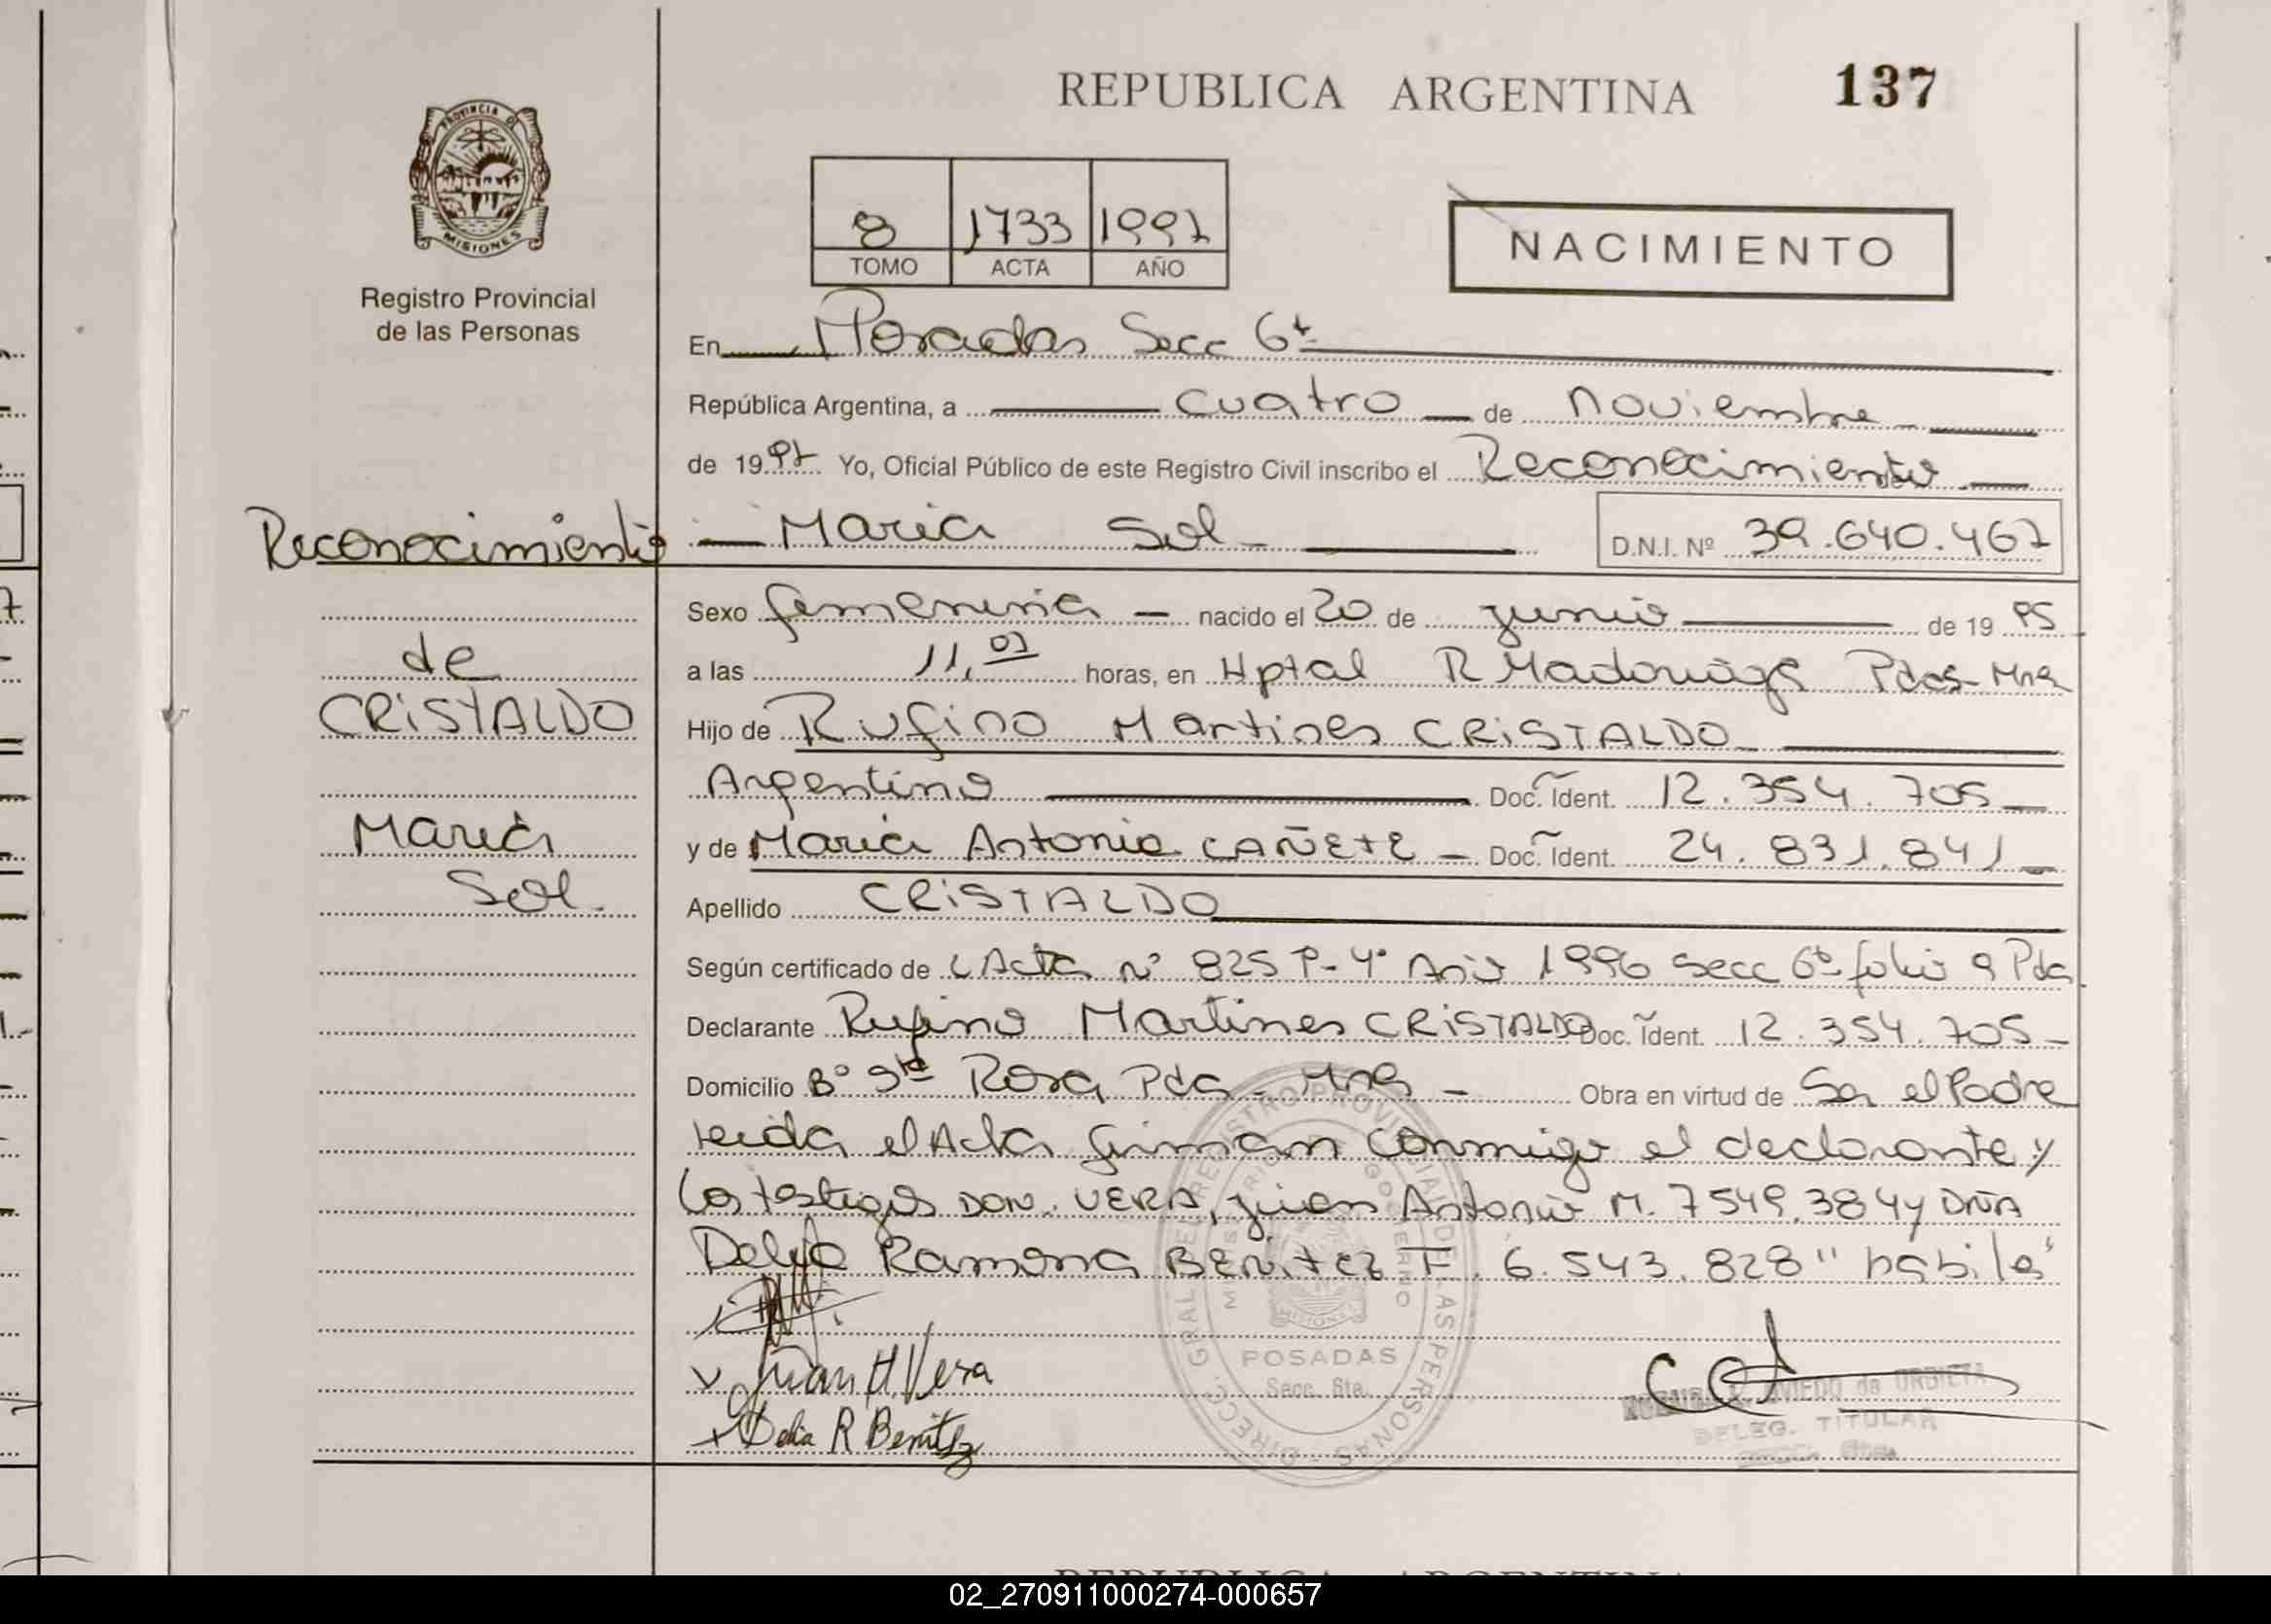 REPUBLICA ARGENTINA 137
PROVINCIA DE
MISIONES
Registro Provincial
de las Personas
8 1733 1997
TOMO ACTA AÑO
NACIMIENTO
En Posadas Secc 6ta
República Argentina, a cuatro de noviembre
de 1997 Yo, Oficial Público de este Registro Civil inscribo el Reconocimiento
Maria Sol D.N.I. Nº 39.640.467
Reconocimiento
de
CRISTALDO
Maria
Sol.
Sexo femenina nacido el 20 de junio de 1995
a las 11,07 horas, en Hptal R Madariaga Pdas-Mnes
Hijo de Rufino Martines CRISTALDO
Argentino Doc. Ident. 12.354.705
y de Maria Antonia CAÑETE Doc. Ident. 24.831.841
Apellido CRISTALDO
Según certificado de Acta Nº 825 T-4º Año 1996 Secc 6ta folio 9 Pdas
Declarante Rufino Martines CRISTALDO Doc. Ident. 12.354.705
Domicilio Bº Sta Rosa Pdas-Mnes Obra en virtud de Ser el Padre
Leida el Acta firman conmigo el declarante y
los testigos DON. VERA, Juan Antonio M. 7549.384 y DÑA
Delia Ramona BENITEZ F. 6.543.828 "habiles"
Juan A Vera
Delia R Benitez
DIRECC. GRAL DEL REGISTRO PROVINCIAL DE LAS PERSONAS
MINISTERIO GOBIERNO
MISIONES
POSADAS
Secc. 6ta.
OVIEDO de URBIETA
DELEG. TITULAR
REPUBLICA ARGENTINA
02_270911000274-000657